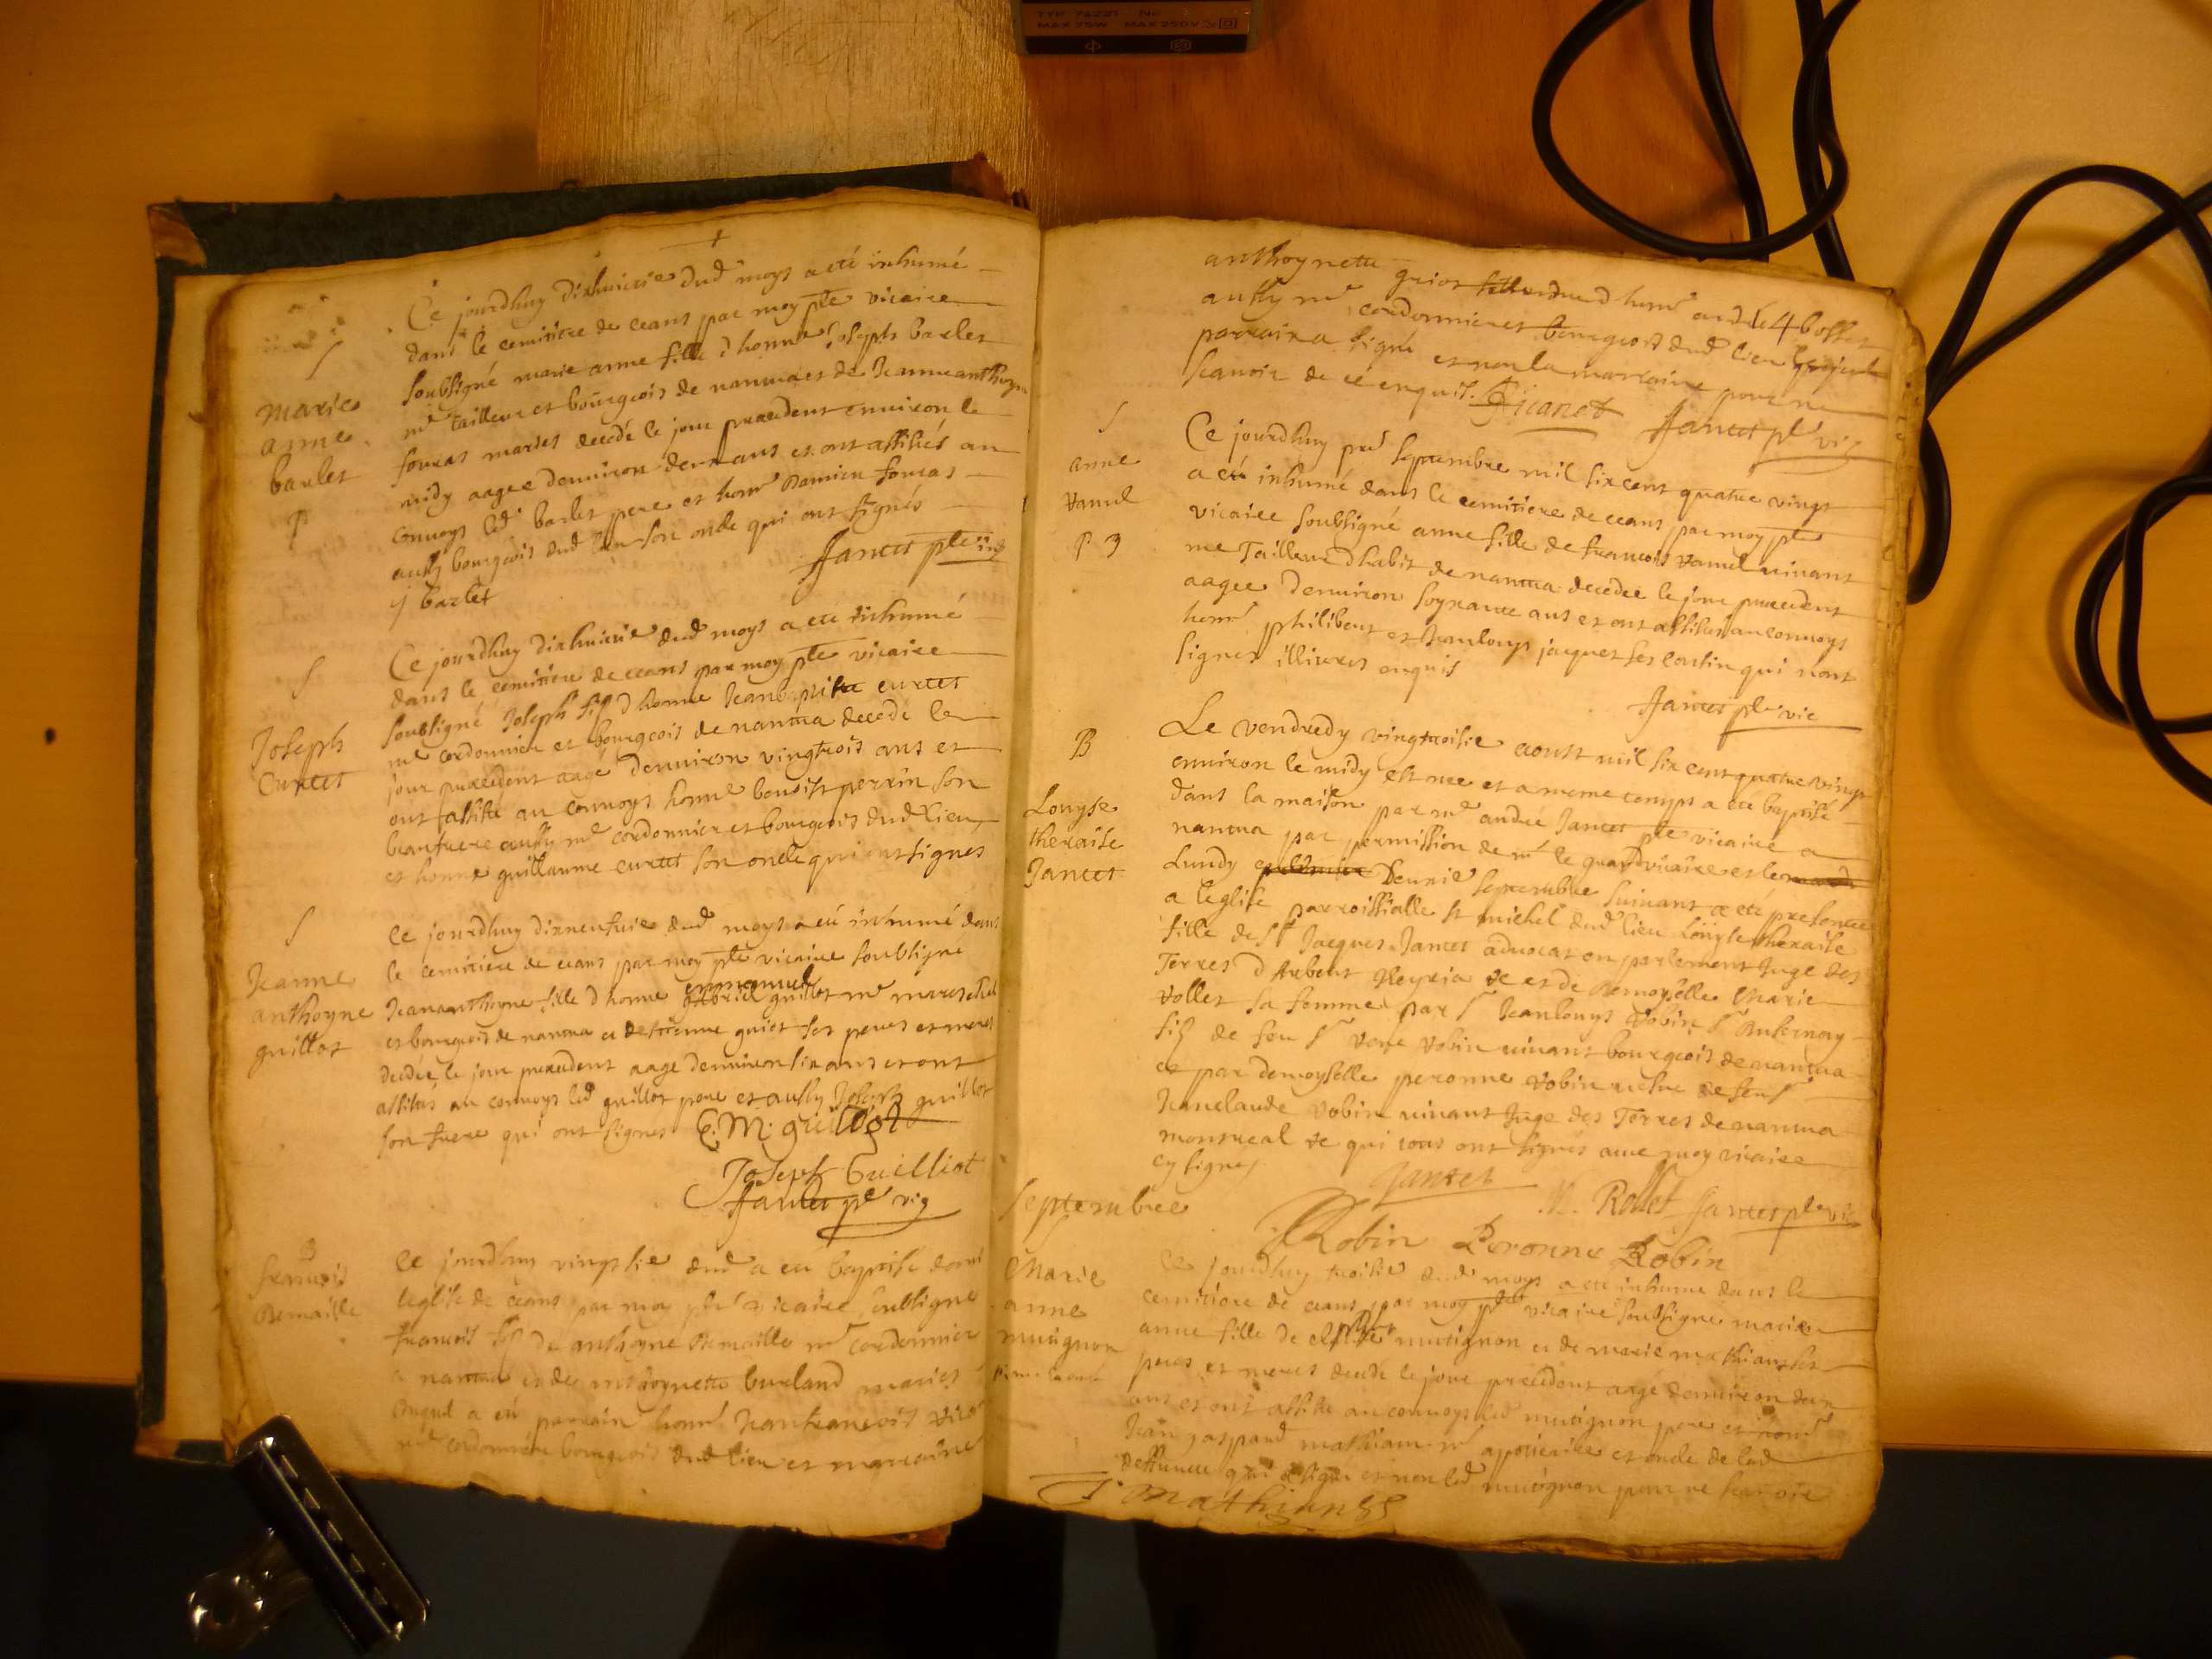 TYP 74221 No
MAX 75W MAX 250V
Ce jourdhuy dixhuictie dud moys a eté inhumé
dans le cemitiere de ceans par moy pte vicaire
soubsigné marie anne fille d honne Joseph barlet
me tailleur et bourgeois de nantua et de Jeanneanthoyne
fouras mariés decedé le jour precedent environ le
midy aagee denviron deux ans et ont assistés au
convoys led barlet pere et honne Damien fouras
aussy bourgeois dud lieu son oncle qui ont signés
Jantet pte vic
J barlet
S
marie
anne
barlet
p
Ce jourdhuy dixhuictie dud moys a eté inhumé
dans le cemitiere de ceans par moy pte vicaire
soubsigné Joseph fils d honne Jeanbaptiste curtet
me cordonnier et bourgeois de nantua decedé le
jour precedent aagé denviron vingtrois ans et
ont assisté au convoys honne benoist perrin son
beaufrere aussy me cordonnier et bourgeois dud lieu
et honne guillaume curtet son oncle qui ont signes
S
Joseph
Curtet
Ce jourdhuy dixneufvie dud moys a eté inhumé dans
le cemitiere de ceans par moy pte vicaire soubsigne
emmanuel
Jeananthoyne fille d honne gabriel guillot me mareschal
et bourgeois de nantua et de guiot ses peres et meres
decedée le jour precedent aagé denviron six ans et ont
assistés au convoys led guillot pere et aussy Joseph guillot
son frere qui ont signes E. M. guillot
Joseph Guilliot
Jantet pte vic
S
Jeanne
anthoyne
guillot
Ce jourdhuy vingtie dud a eté baptisé dans
leglise de ceans par moy pte vicaire soubsigne
francois fils de anthoyne Demaille me cordonnier
a nantua et de anthoynette burland mariés
duquel a eté parrain honne Jeanfrancois
me cordonnier bourgeois dud lieu et marraine
B
francois
Demaille
anthoynette guiot
aussy me cordonnier et bourgeois dud lieu
parrain a signé et non la marraine pour ne
scavoir de ce enquis. Jicanet Jantet pte vic
S
anne
vanel
p 3
Ce jourdhuy pre septembre mil six cent quatre vingt
a eté inhumé dans le cemitiere de ceans par moy pte
vicaire soubsigné anne fille de francois vanel vivant
me Tailleur dhabit de nantua decedée le jour precedent
aagee denviron soyxante ans et ont assistés au convoys
honne philibert et Jeanlouys jacquet ses cousin qui nont
signés illitérés enquis
Jantet pte vic
B
Louyse
theraise
Jantet
Le vendredy vingtroisie aoust mil six cent quatre vingt
environ le midy est nee et a meme temps a eté baptisé
dans la maison par me andré Jantet pte vicaire a
nantua par permission de mr le grand vicaire et le
Lundy deuxie septembre suivant a eté presentée
a leglise parroissialle st michel dud lieu Louyse theraise
fille de Sr Jacques Jantet advocat en parlement Juge des
Terres d Arbent Heyria &c et de Demoyselle Marie
Rollet sa femme par Sr Jeanlouys Robin Sr
fils de feu Sr René Robin vivant bourgeois de nantua
et par demoyselle peronne Robin vefve de feu Sr
Jeanclaude Robin vivant Juge des Terres de nantua
montreal &c qui tous ont signés avec moy vicaire
cy signés
Jantet
M. Rollet Jantet pte vic
Robin Peronne Robin
Septembre
S
Marie
anne
mutignon
Ce jourdhuy troisie dud moys a eté inhumé dans le
cemitiere de ceans par moy pte vicaire soubsigné marie
anne fille de mutignon et de marie mathian ses
peres et meres decedé le jour precedent aagé denviron deux
ans et ont assisté au convoys led mutignon pere et honne
Jean gaspard mathian me apoticaire et oncle de lad
deffuncte qui a signé et non led mutignon pour ne scavoir
J. mathian